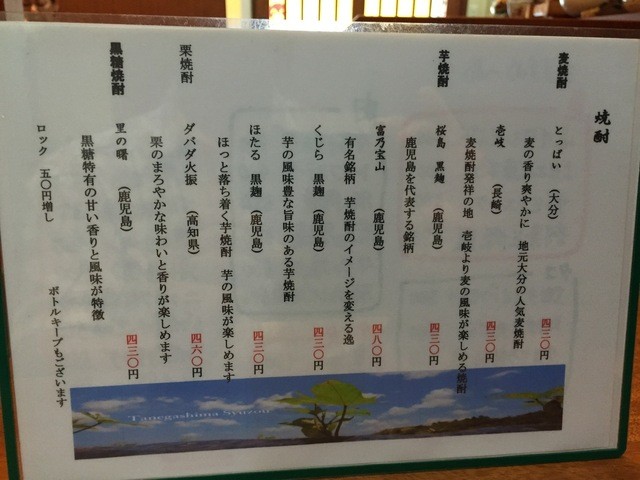 焼酎
麦焼酎
とっぱい （大分） 四三〇円
麦の香り爽やかに 地元大分の人気麦焼酎
壱岐 （長崎） 四三〇円
麦焼酎発祥の地 壱岐より麦の風味が楽しめる焼酎
芋焼酎
桜島 黒麹 （鹿児島） 四三〇円
鹿児島を代表する銘柄
富乃宝山 （鹿児島） 四八〇円
有名銘柄 芋焼酎のイメージを変える逸
くじら 黒麹 （鹿児島） 四三〇円
芋の風味豊な旨味のある芋焼酎
ほたる 黒麹 （鹿児島） 四三〇円
ほっと落ち着く芋焼酎 芋の風味が楽しめます
栗焼酎
ダバダ火振 （高知県） 四六〇円
栗のまろやかな味わいと香りが楽しめます
黒糖焼酎
里の曙 （鹿児島） 四三〇円
黒糖特有の甘い香りと風味が特徴
ロック 五〇円増し
ボトルキープもございます
Tanegashima